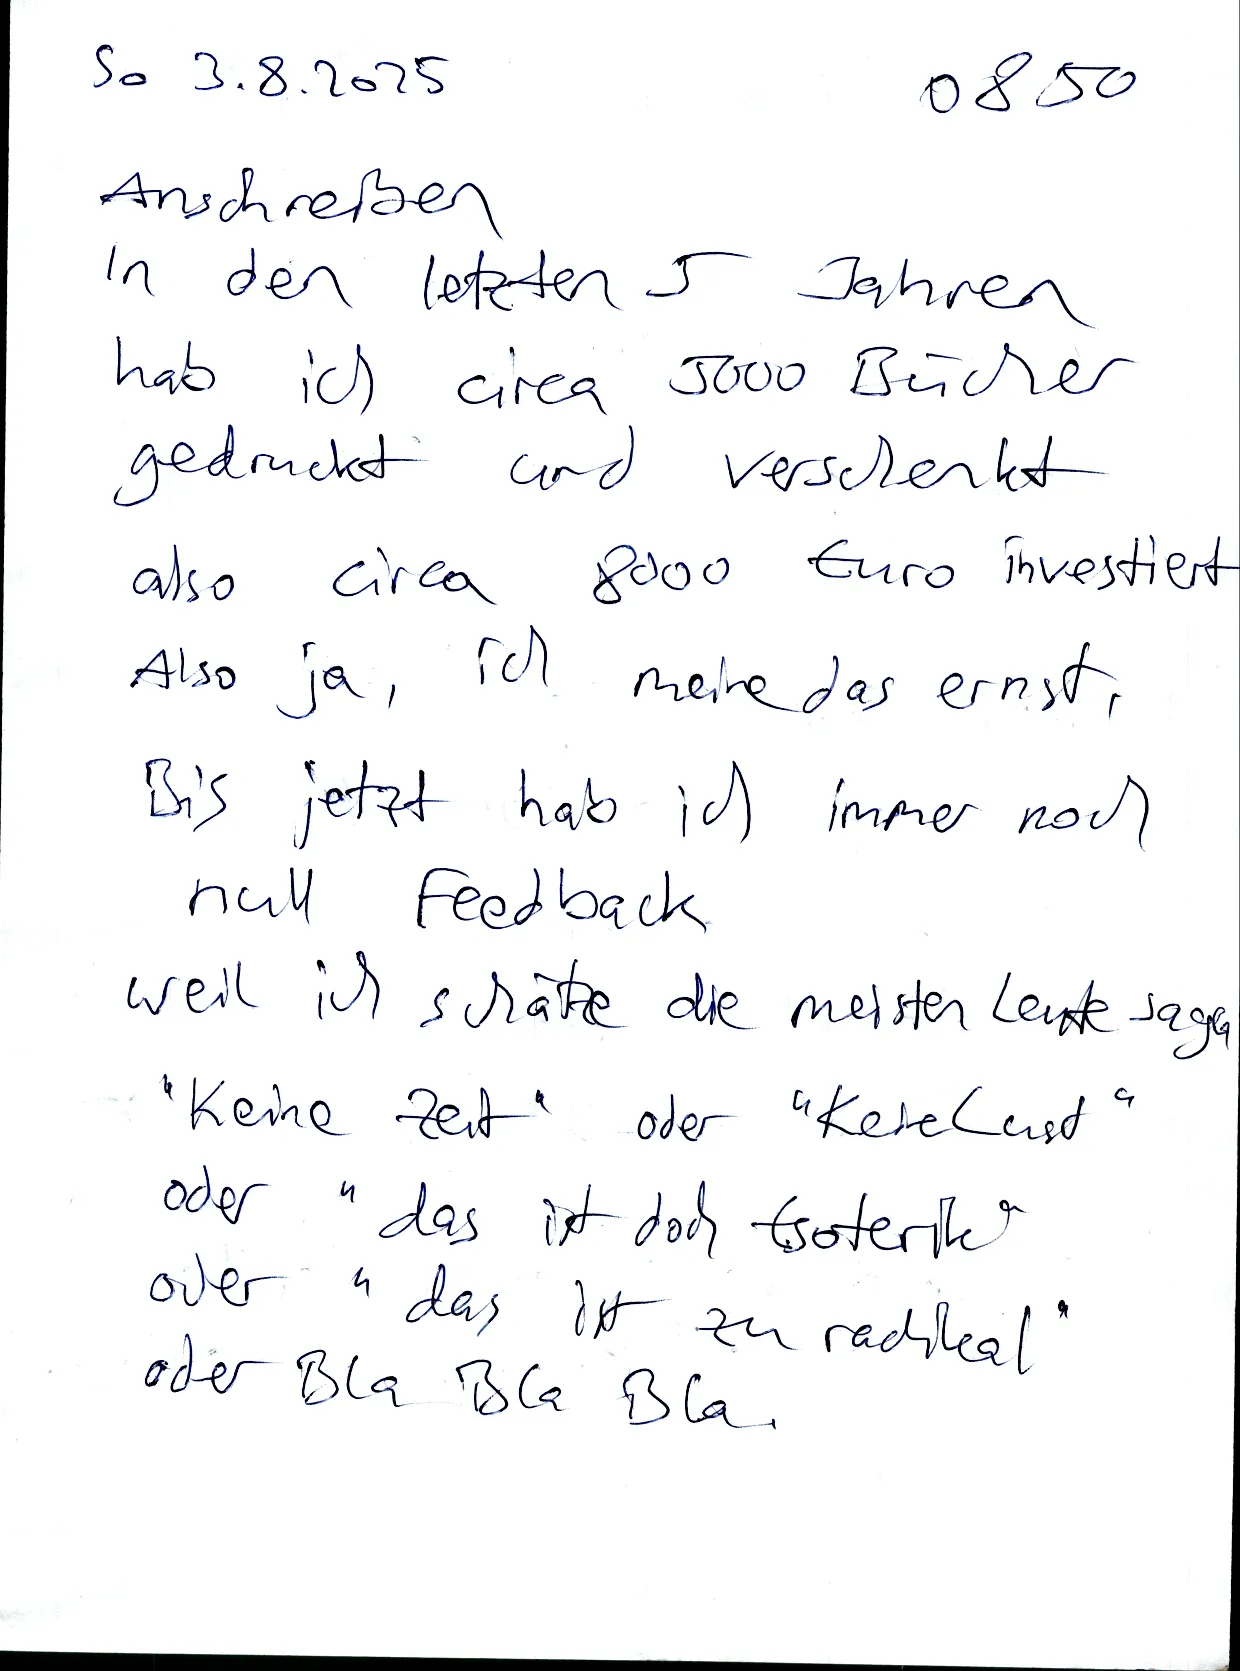 So 3.8.2025 0850
Anschreiben
In den letzten 5 Jahren
hab ich circa 5000 Bücher
gedruckt und verschenkt
also circa 8000 Euro investiert
Also ja, ich meine das ernst,
Bis jetzt hab ich immer noch
null Feedback
weil ich schätze die meisten Leute sagen
"Keine Zeit" oder "Keine Lust"
oder "das ist doch Esoterik"
oder "das ist zu radikal"
oder Bla Bla Bla.